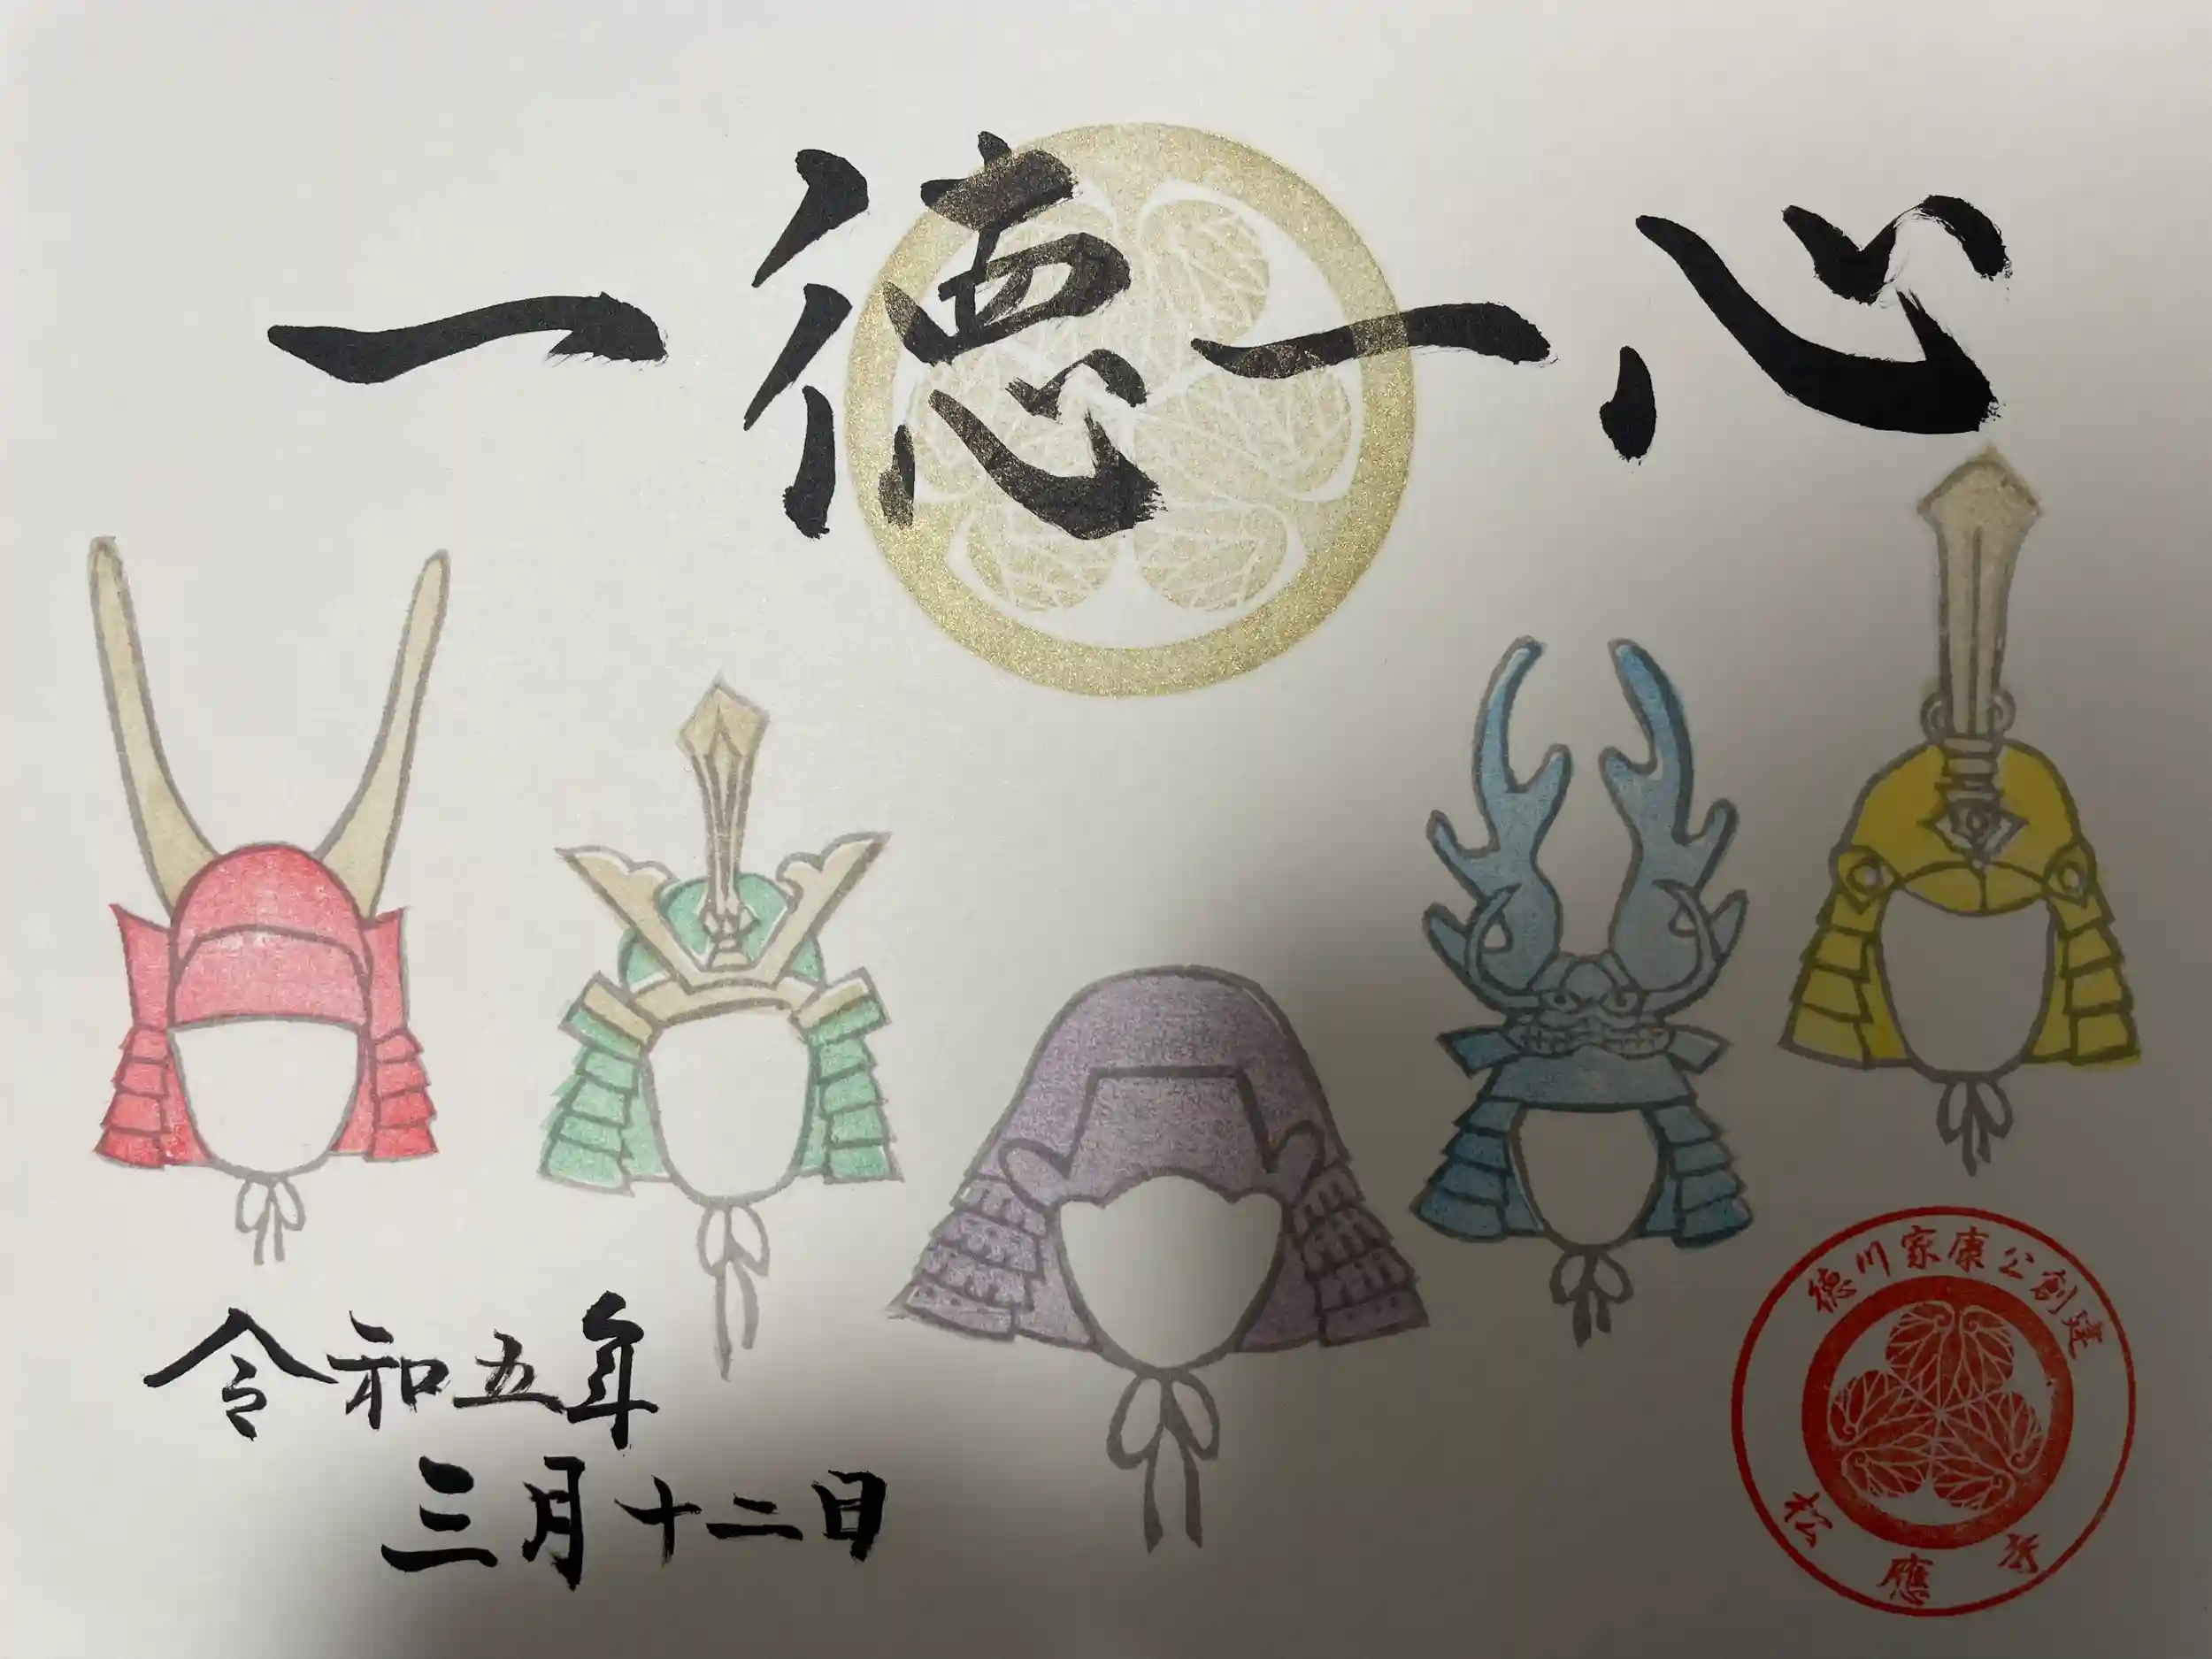 一徳一心
令和五年
三月十二日
徳川家康公創建
松應寺